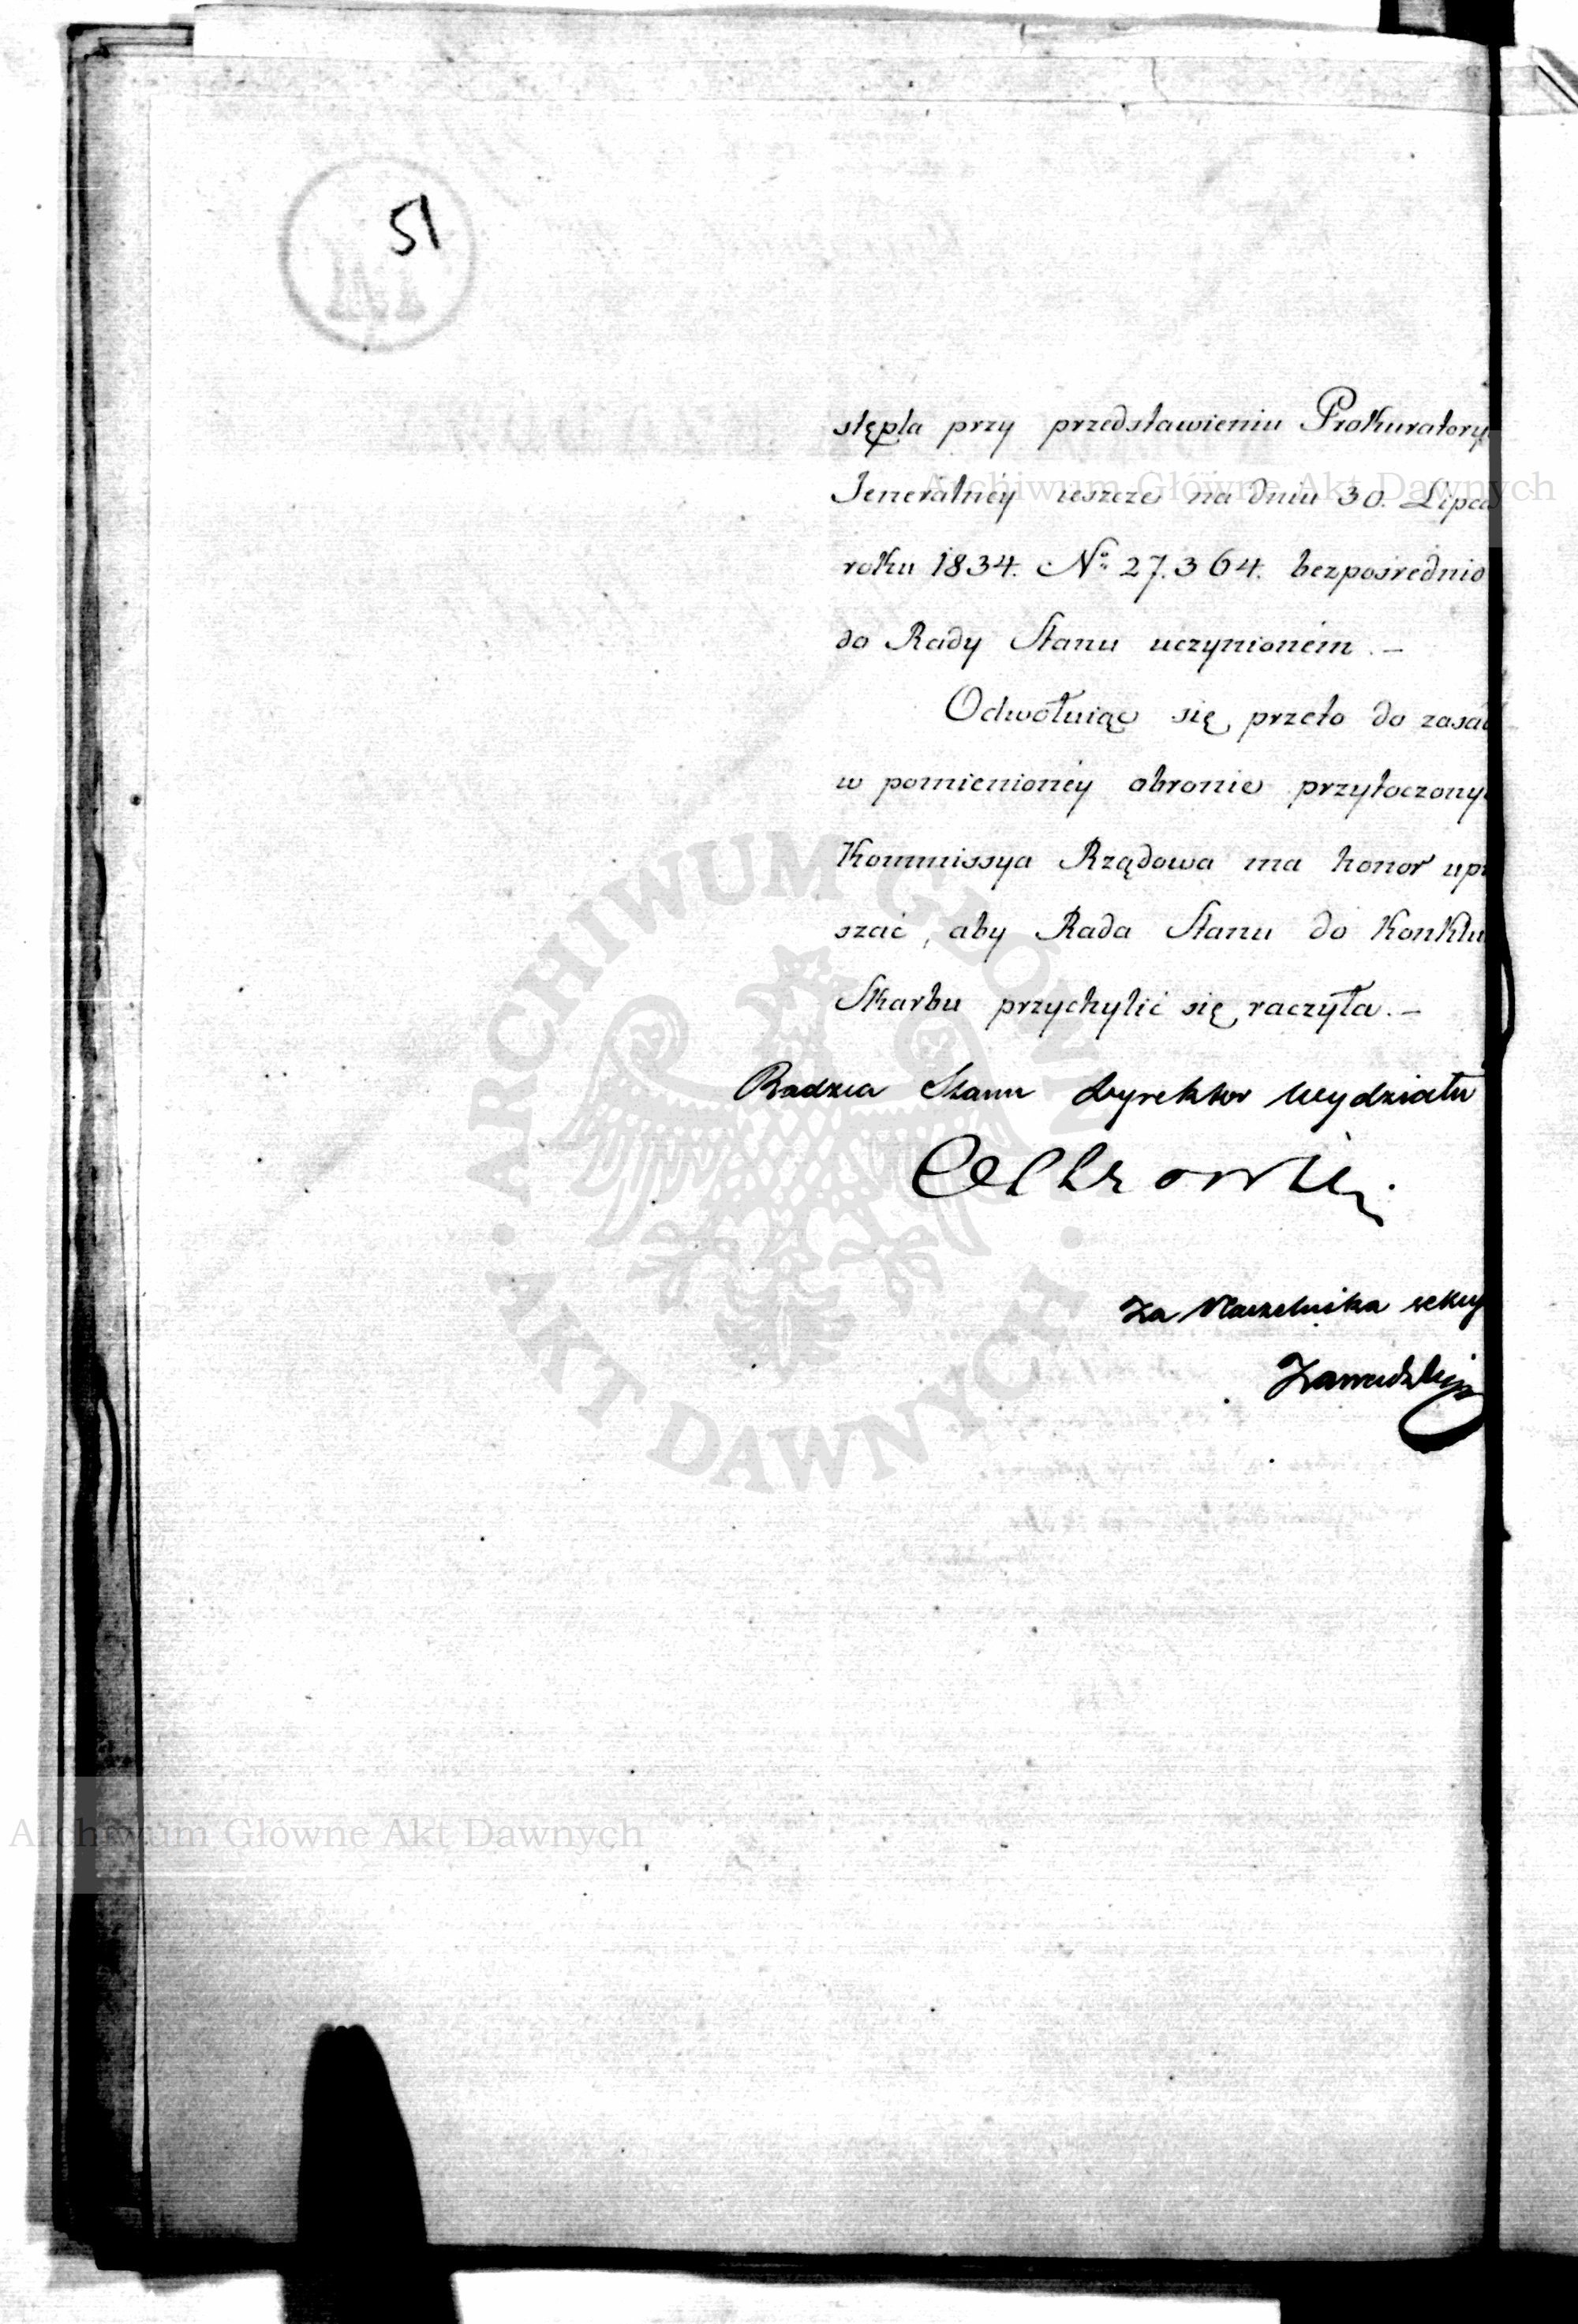 51
stępla przy przedstawieniu Prokuratory
Jeneralnéy ieszcze na dniu 30. Lipca
roku 1834. No 27.364. bezpośrednio
do Rady Stanu uczynioném. –
Odwołuiąc się przeto do zasad
w pomienionéy obronie przytoczony
Kommissya Rządowa ma honor upr
szać, aby Rada Stanu do Konklu
Skarbu przychylić się raczyła. –
Radzca Stanu Dyrektor Wydziału
Za Naczelnika sekcy
Zawadzki
Archiwum Główne Akt Dawnych
ARCHIWUM GŁÓWNE
AKT DAWNYCH
Archiwum Główne Akt Dawnych